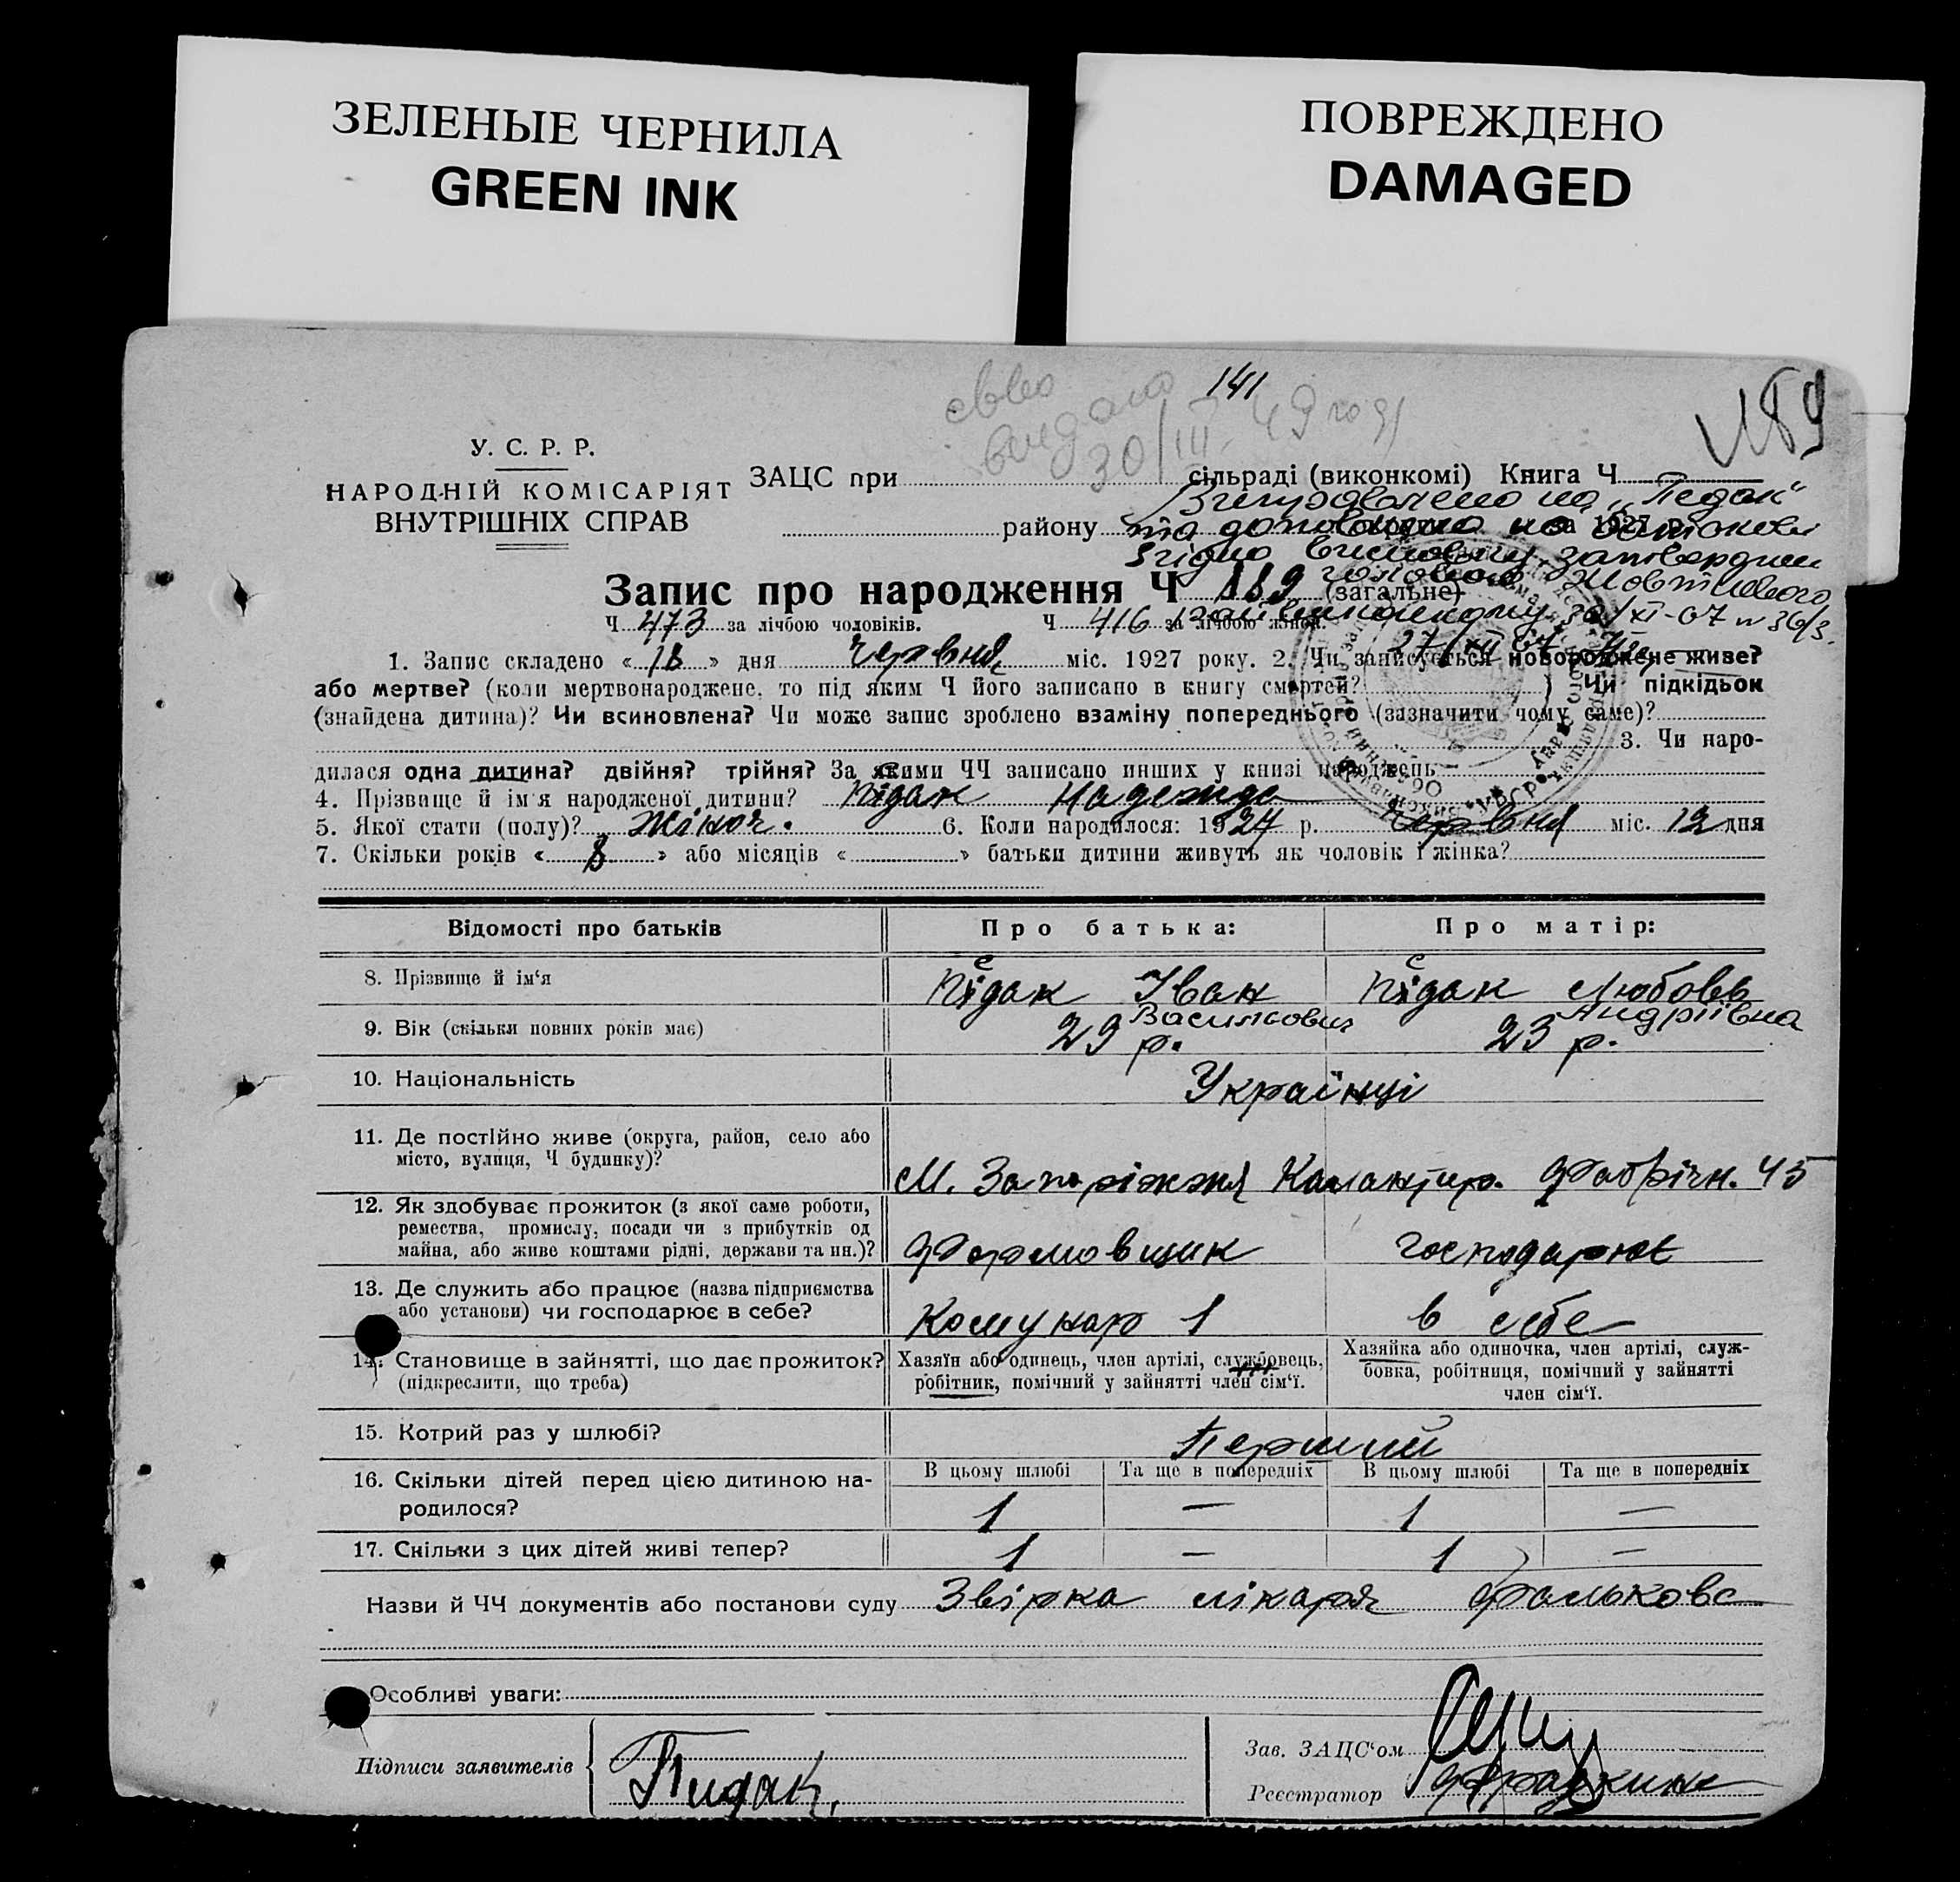 ЗЕЛЕНЫЕ ЧЕРНИЛА
GREEN INK
ПОВРЕЖДЕНО
DAMAGED
141
видано
30/III 49 году
У. С. Р. Р.
НАРОДНІЙ КОМІСАРІЯТ
ВНУТРІШНІХ СПРАВ
ЗАЦС при сільраді (виконкомі) Книга Ч
району за 1927 р.
Виправлено на „Педак"
та доповнено по батькові
згідно висновку затверджен
головою Жовтневого
райвиконкому 30/XI-67 № 36/3.
27/XII 67
Запис про народження Ч 889 (загальне)
Ч 473 за лічбою чоловіків. Ч 416 за лічбою жінок.
1. Запис складено « 18 » дня червня міс. 1927 року. 2. Чи записується новороджене живе?
або мертве? (коли мертвонароджене, то під яким Ч його записано в книгу смертей? ) Чи підкідьок
(знайдена дитина)? Чи всиновлена? Чи може запис зроблено взаміну попереднього (зазначити чому саме)?
3. Чи наро-
дилася одна дитина? двійня? трійня? За якими ЧЧ записано инших у книзі народжень
4. Прізвище й ім'я народженої дитини? Підак Надежда
5. Якої стати (полу)? Жіноч. 6. Коли народилося: 1927 р. Червня міс. 12 дня
7. Скільки років « 8 » або місяців « » батьки дитини живуть як чоловік і жінка?
Відомості про батьків Про батька: Про матір:
8. Прізвище й ім'я Підак Іван Підак Любовь
Васильович Андріївна
9. Вік (скільки повних років має) 29 р. 23 р.
10. Національність Українці
11. Де постійно живе (округа, район, село або
місто, вулиця, Ч будинку)?
М. Запоріжжя Калантир. Фабрічн. 45
12. Як здобуває прожиток (з якої саме роботи,
ремества, промислу, посади чи з прибутків од
майна, або живе коштами рідні, держави та ин.)?
Формовщик господарює
13. Де служить або працює (назва підприємства
або установи) чи господарює в себе?
Комунар 1 в себе
14. Становище в зайнятті, що дає прожиток?
(підкреслити, що треба)
Хазяїн або одинець, член артілі, службовець,
робітник, помічний у зайнятті член сім'ї.
Хазяйка або одиночка, член артілі, служ-
бовка, робітниця, помічний у зайнятті
член сім'ї.
15. Котрий раз у шлюбі? Перший
16. Скільки дітей перед цією дитиною на-
родилося?
В цьому шлюбі Та ще в попередніх В цьому шлюбі Та ще в попередніх
1 — 1 —
17. Скільки з цих дітей живі тепер? 1 — 1 —
Назви й ЧЧ документів або постанови суду Звірка лікаря Фальковс
Особливі уваги:
Підписи заявителів Пидак.
Зав. ЗАЦС'ом
Реєстратор Фрадкина